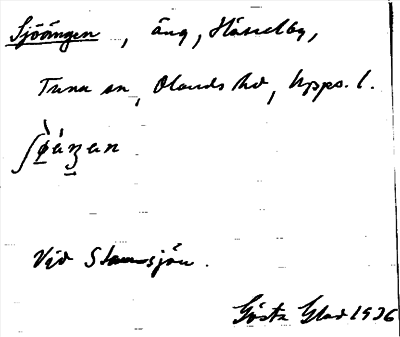 Sjöängen, äng, Hässelby,
Tuna sn, Olands hd, Upps. l.
Vid Stamsjön.
Gösta Glad 1936